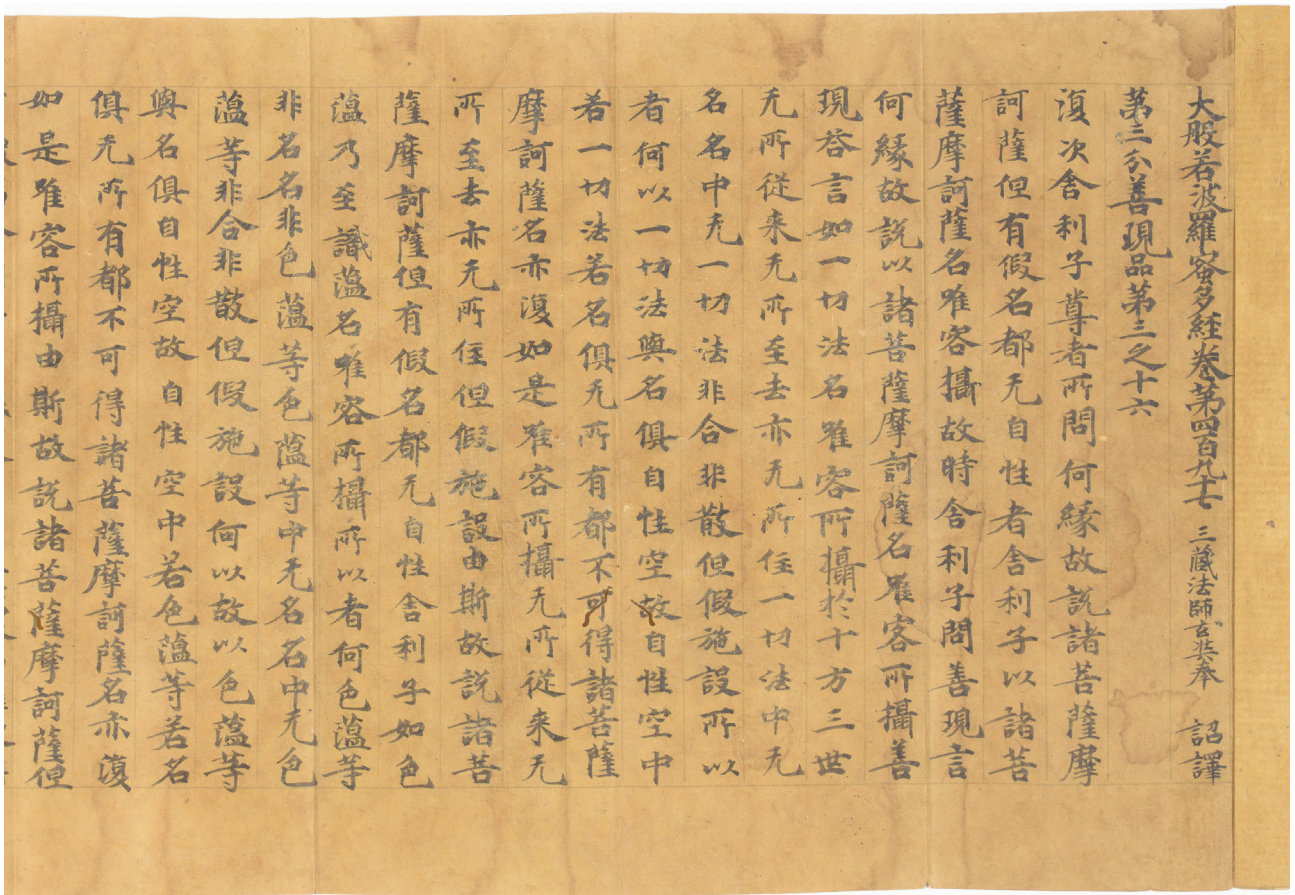 大般若波羅蜜多經卷第四百九十七 三藏法師玄奘奉 詔譯
第三分善現品第三之十六
復次舍利子尊者所問何緣故說諸菩薩摩
訶薩但有假名都无自性者舍利子以諸菩
薩摩訶薩名唯客攝故時舍利子問善現言
何緣故說以諸菩薩摩訶薩名唯客所攝善
現答言如一切法名唯客所攝於十方三世
无所從来无所至去亦无所住一切法中无
名名中无一切法非合非散但假施設所以
者何以一切法與名俱自性空故自性空中
若一切法若名俱无所有都不可得諸菩薩
摩訶薩名亦復如是唯客所攝无所從来无
所至去亦无所住但假施設由斯故說諸菩
薩摩訶薩但有假名都无自性舍利子如色
蘊乃至識蘊名唯客所攝所以者何色蘊等
非名名非色蘊等色蘊等中无名名中无色
蘊等非合非散但假施設何以故以色蘊等
與名俱自性空故自性空中若色蘊等若名
俱无所有都不可得諸菩薩摩訶薩名亦復
如是唯客所攝由斯故說諸菩薩摩訶薩但